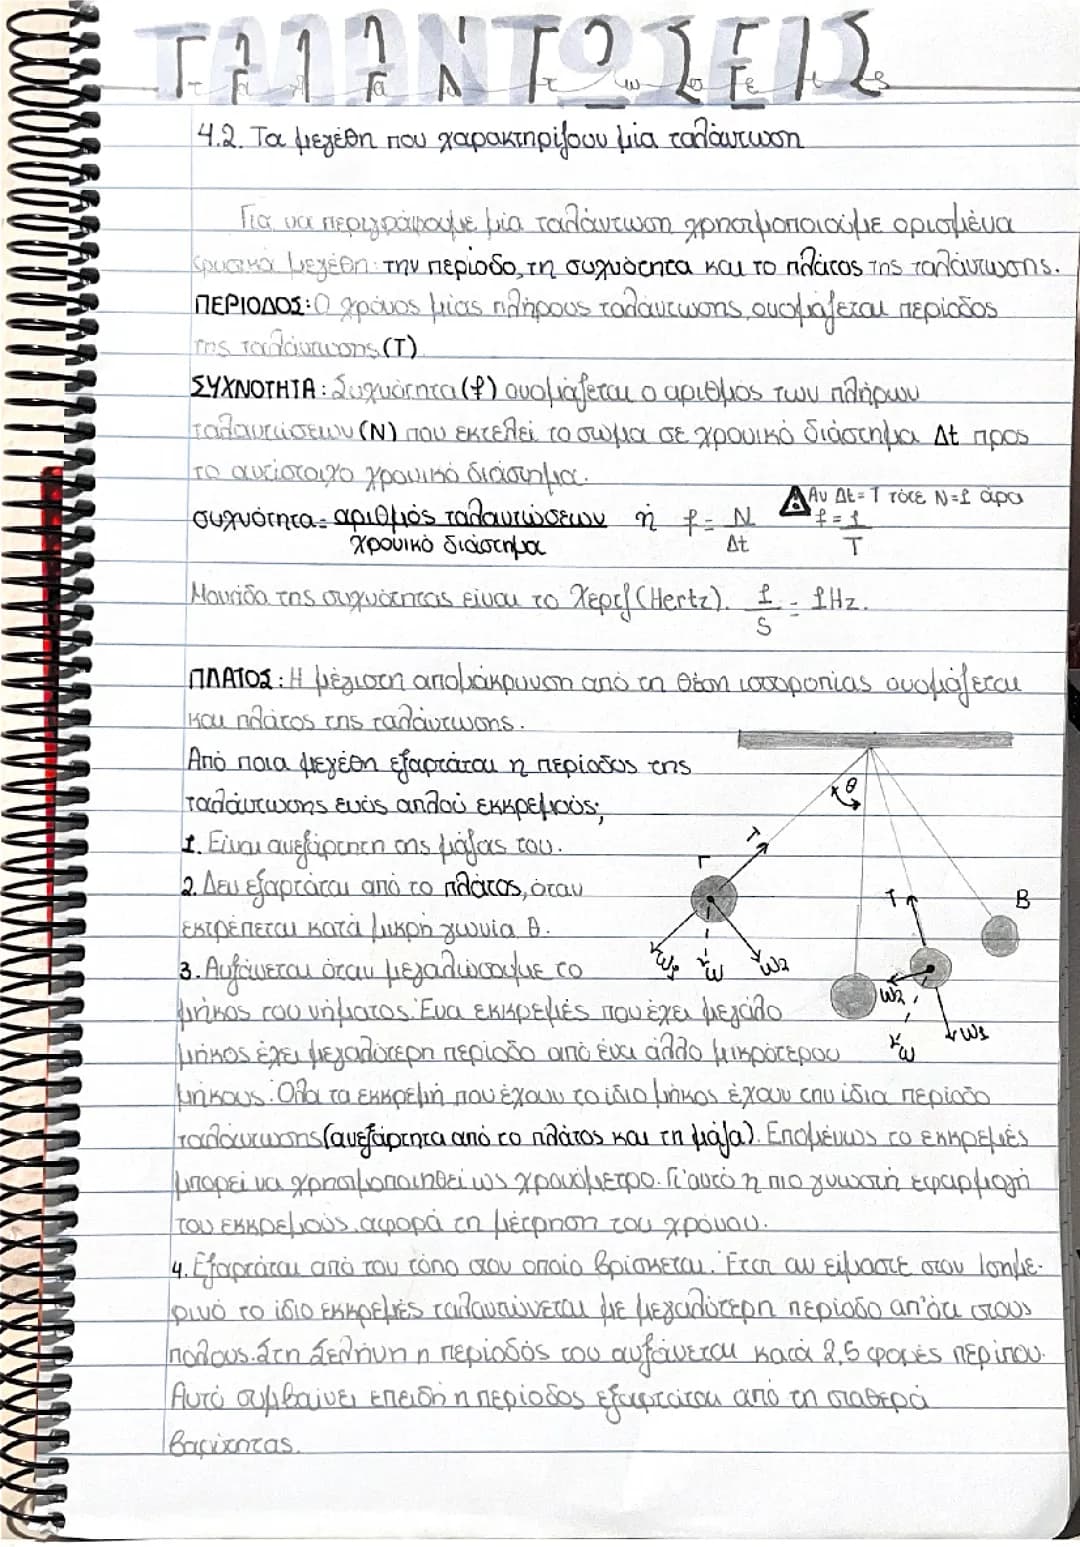 ΤΑΛΑΝΤΩΣΕΙΣ
4.2. Τα μεγέθη που χαρακτηρίζουν μία ταλάντωση
Για να περιγράψουμε μία ταλάντωση χρησιμοποιούμε ορισμένα
φυσικά μεγέθη: την περίοδο, τη συχνότητα και το πλάτος της ταλάντωσης.
ΠΕΡΙΟΔΟΣ: Ο χρόνος μίας πλήρους ταλάντωσης, ονομάζεται περίοδος
της ταλάντωσης (T)
ΣΥΧΝΟΤΗΤΑ: Συχνότητα (f) ονομάζεται ο αριθμός των πλήρων
ταλαντώσεων (N) που εκτελεί το σώμα σε χρονικό διάστημα Δt προς
το αντίστοιχο χρονικό διάστημα.
Αν Δt = T τότε N=1 άρα
f = 1
T
συχνότητα = αριθμός ταλαντώσεων ή f = N
χρονικό διάστημα Δt
Μονάδα της συχνότητας είναι το Χερτζ (Hertz). 1 = 1Hz.
S
ΠΛΑΤΟΣ: Η μέγιστη απομάκρυνση από τη θέση ισορροπίας ονομάζεται
και πλάτος της ταλάντωσης.
Από ποια μεγέθη εξαρτάται η περίοδος της
ταλάντωσης ενός απλού εκκρεμούς;
1. Είναι ανεξάρτητη της μάζας του.
2. Δεν εξαρτάται από το πλάτος, όταν
εκτρέπεται κατά μικρή γωνία θ.
3. Αυξάνεται όταν μεγαλώσουμε το
μήκος του νήματος. Ένα εκκρεμές που έχει μεγάλο
μήκος έχει μεγαλύτερη περίοδο από ένα άλλο μικρότερου
μήκους. Όλα τα εκκρεμή που έχουν το ίδιο μήκος έχουν την ίδια περίοδο
ταλάντωσης (ανεξάρτητα από το πλάτος και τη μάζα). Επομένως το εκκρεμές
μπορεί να χρησιμοποιηθεί ως χρονόμετρο. Γι'αυτό η πιο γνωστή εφαρμογή
του εκκρεμούς αφορά τη μέτρηση του χρόνου.
4. Εξαρτάται από τον τόπο στον οποίο βρίσκεται. Έτσι αν είμαστε στον Ισημε-
ρινό το ίδιο εκκρεμές ταλαντώνεται με μεγαλύτερη περίοδο απ'ότι στους
πόλους. Στη Σελήνη η περίοδός του αυξάνεται κατά 2,5 φορές περίπου.
Αυτό συμβαίνει επειδή η περίοδος εξαρτάται από τη σταθερά
βαρύτητας.
θ
T
Γ
T
B
w1
w
w2
w2
w1
w